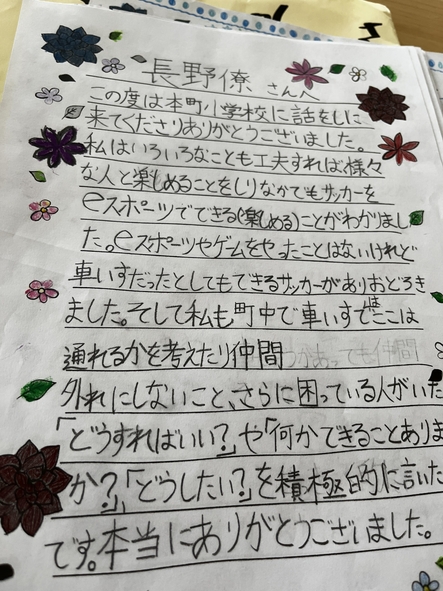 長野僚さんへ
この度は本町小学校に話をしに
来てくださりありがとうございました。
私はいろいろなことも工夫すれば様々
な人と楽しめることをしりなかでもサッカーを
eスポーツでできる(楽しめる)ことがわかりまし
た。eスポーツやゲームをやったことはないけれど
車いすだったとしてもできるサッカーがありおどろき
ました。そして私も町中で車いすでここは
通れるかを考えたり仲間
外れにしないこと、さらに困っている人がいた
「どうすればいい?」や「何かできることありま
か?」「どうしたい?」を積極的に言いた
です。本当にありがとうございました。